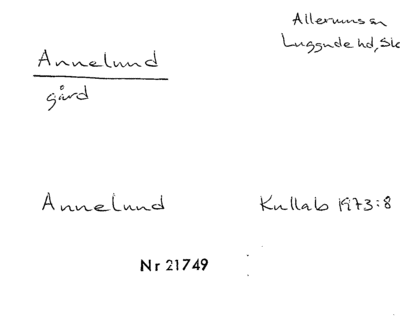 Allerums sn
Luggude hd, Sk
Annelund
gård
Annelund Kullab 1973:8
Nr 21749